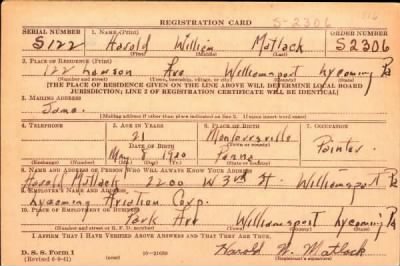 REGISTRATION CARD
S-2306
SERIAL NUMBER 1. NAME (Print) ORDER NUMBER
S122 Harold William Matlack S2306
(First) (Middle) (Last)
2. PLACE OF RESIDENCE (Print)
122 Ave Williamsport Lycoming Pa
(Number and street) (Town, township, village, or city) (County) (State)
[THE PLACE OF RESIDENCE GIVEN ON THE LINE ABOVE WILL DETERMINE LOCAL BOARD
JURISDICTION; LINE 2 OF REGISTRATION CERTIFICATE WILL BE IDENTICAL]
3. MAILING ADDRESS
Same.
[Mailing address if other than place indicated on line 2. If same insert word same]
4. TELEPHONE 5. AGE IN YEARS 6. PLACE OF BIRTH 7. OCCUPATION
21 Montoursville
DATE OF BIRTH
May 8 1920 Penna Painter
(Exchange) (Number) (Mo.) (Day) (Yr.) (State or country)
8. NAME AND ADDRESS OF PERSON WHO WILL ALWAYS KNOW YOUR ADDRESS
Harold Matlack 2200 W 3rd St. Williamsport Pa
9. EMPLOYER'S NAME AND ADDRESS
Lycoming Aviation Corp.
10. PLACE OF EMPLOYMENT OR BUSINESS
Park Ave Williamsport Lycoming Pa
(Number and street or R. F. D. number) (Town) (County) (State)
I AFFIRM THAT I HAVE VERIFIED ABOVE ANSWERS AND THAT THEY ARE TRUE.
D. S. S. Form 1
(Revised 6-9-41) (over) Harold W. Matlack